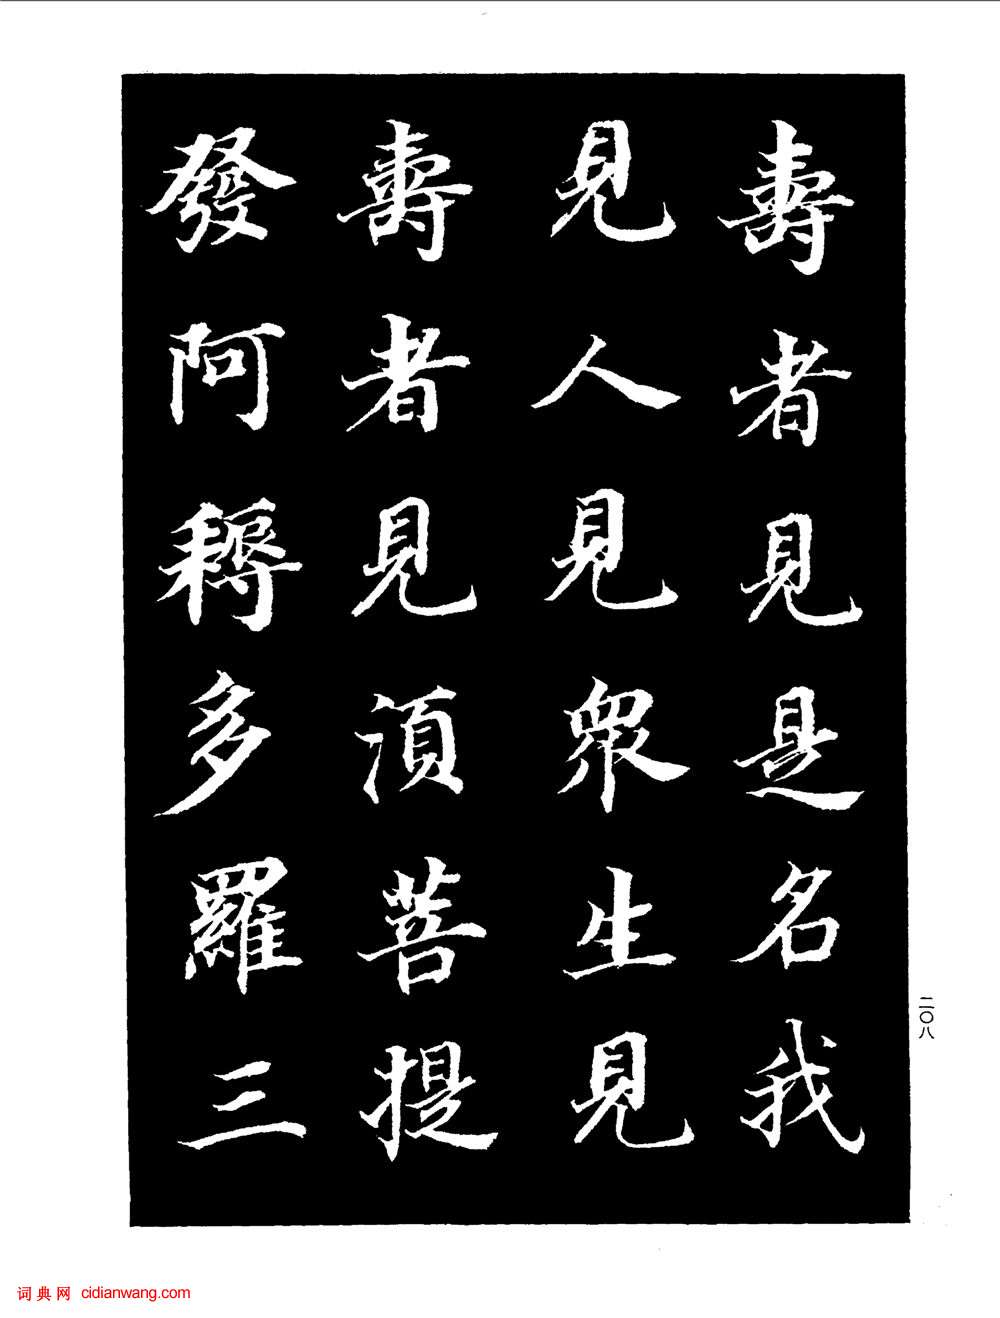 壽者見是名我
見人見衆生見
壽者見須菩提
發阿耨多羅三
二〇八
词典网 cidianwang.com